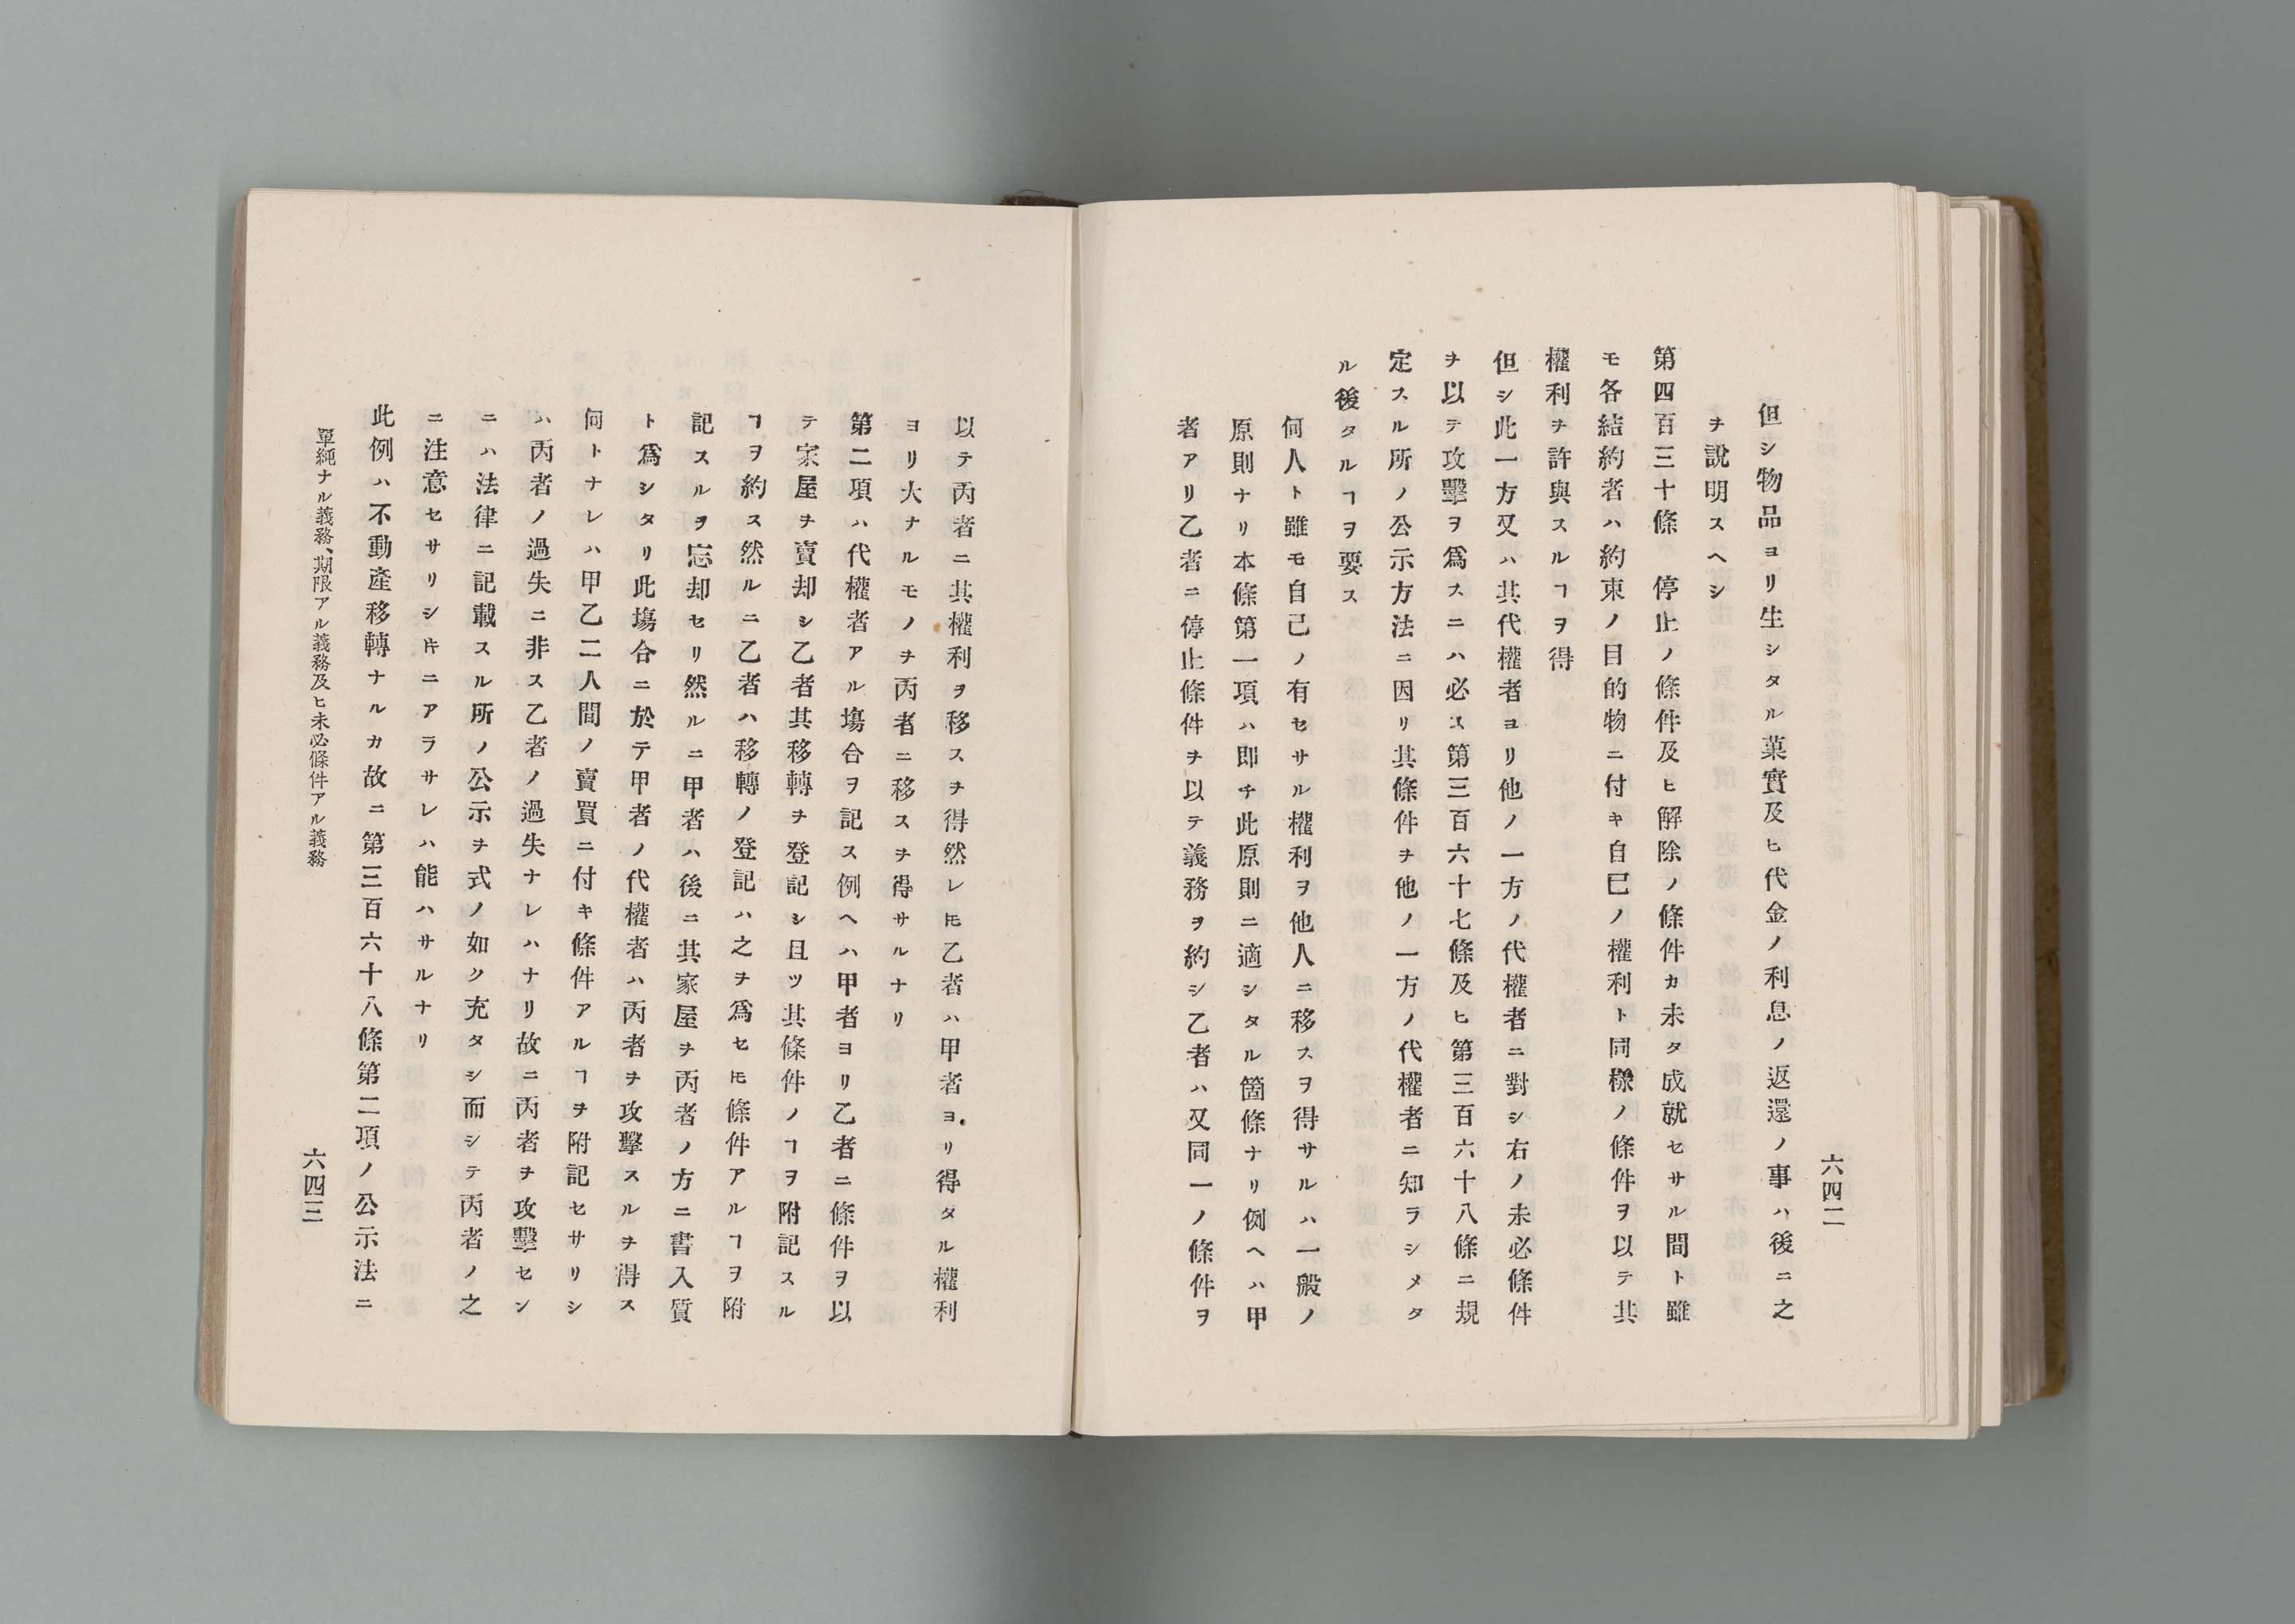 六四二
但シ物品ヨリ生シタル菓實及ヒ代金ノ利息ノ返還ノ事ハ後ニ之
ヲ說明スヘシ
第四百三十條　停止ノ條件及ヒ解除ノ條件カ未タ成就セサル間ト雖
モ各結約者ハ約束ノ目的物ニ付キ自己ノ權利ト同樣ノ條件ヲ以テ其
權利ヲ許與スルヿヲ得
但シ此一方又ハ其代權者ヨリ他ノ一方ノ代權者ニ對シ右ノ未必條件
ヲ以テ攻擊ヲ爲スニハ必ス第三百六十七條及ヒ第三百六十八條ニ規
定スル所ノ公示方法ニ因リ其條件ヲ他ノ一方ノ代權者ニ知ラシメタ
ル後タルヿヲ要ス
何人ト雖モ自己ノ有セサル權利ヲ他人ニ移スヲ得サルハ一般ノ
原則ナリ本條第一項ハ即チ此原則ニ適シタル箇條ナリ例ヘハ甲
者アリ乙者ニ停止條件ヲ以テ義務ヲ約シ乙者ハ又同一ノ條件ヲ
以テ丙者ニ其權利ヲ移スヲ得然レ𪜈乙者ハ甲者ヨリ得タル權利
ヨリ大ナルモノヲ丙者ニ移スヲ得サルナリ
第二項ハ代權者アル塲合ヲ記ス例ヘハ甲者ヨリ乙者ニ條件ヲ以
テ家屋ヲ賣却シ乙者其移轉ヲ登記シ且ツ其條件ノヿヲ附記スル
ヿヲ約ス然ルニ乙者ハ移轉ノ登記ハ之ヲ爲セ𪜈條件アルヿヲ附
記スルヲ忘却セリ然ルニ甲者ハ後ニ其家屋ヲ丙者ノ方ニ書入質
ト爲シタリ此塲合ニ於テ甲者ノ代權者ハ丙者ヲ攻擊スルヲ得ス
何トナレハ甲乙二人間ノ賣買ニ付キ條件アルヿヲ附記セサリシ
ハ丙者ノ過失ニ非ス乙者ノ過失ナレハナリ故ニ丙者ヲ攻擊セン
ニハ法律ニ記載スル所ノ公示ヲ式ノ如ク充タシ而シテ丙者ノ之
ニ注意セサリシ𬼀ニアラサレハ能ハサルナリ
此例ハ不動產移轉ナルカ故ニ第三百六十八條第二項ノ公示法ニ
單純ナル義務、期限アル義務及ヒ未必條件アル義務
六四三